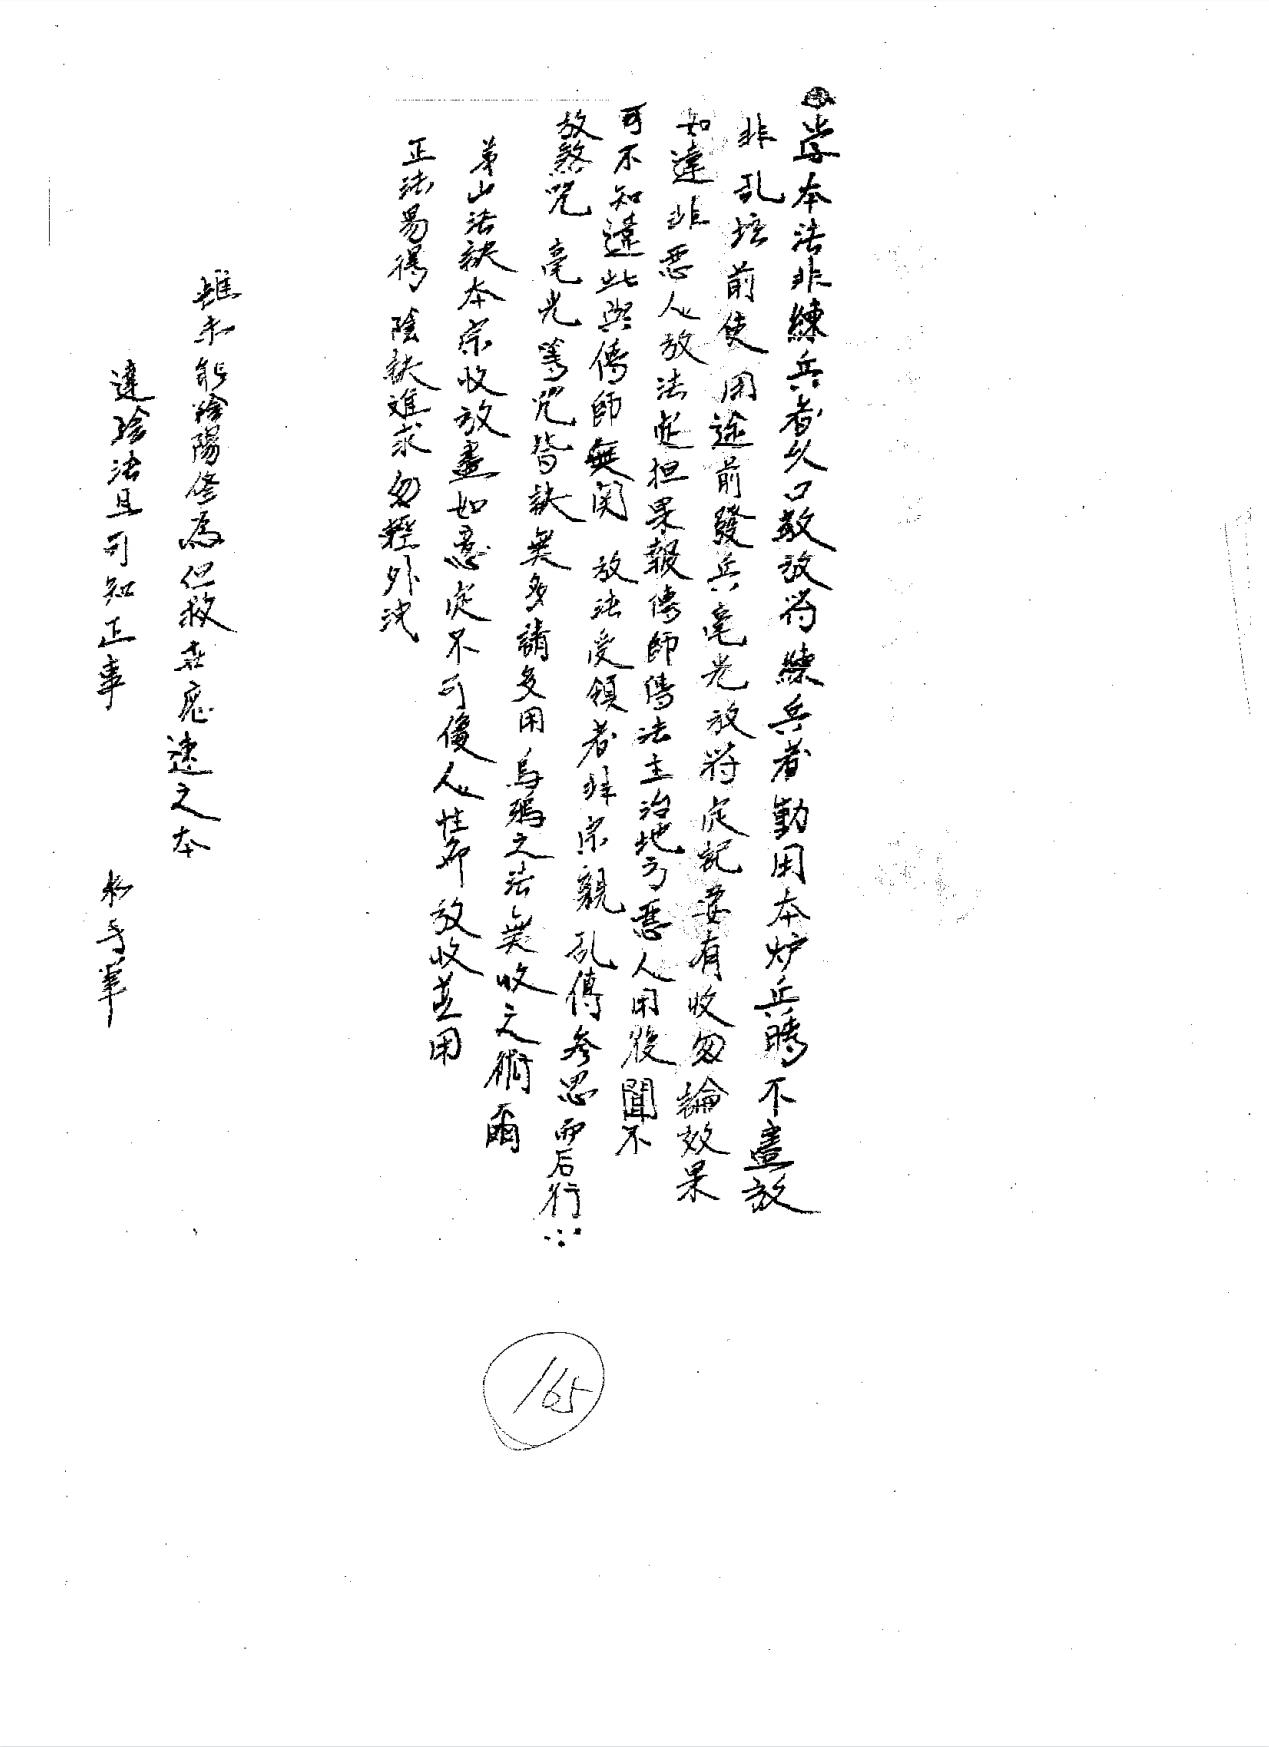 学本法非練兵者久口敎放符練兵者勤用本炉兵時不盡放
非乱坛前使用途前發兵毫光放将定記要有收勿論效果
如違非惡人放法定担果報傳師傳法主治地方惡人用後聞不
可不知違此與傳師無関 放法受領者非宗親乱傳参思而后行
放煞咒 毫光等咒皆訣無多請多用烏鴉之法無收之術爾
茅山法訣本宗收放盡如意定不可傷人性命放收並用
正法易得陰訣進求勿輕外洩
雖未能陰陽修為但救世應速之本
違陰法且可知正事
手筆
165